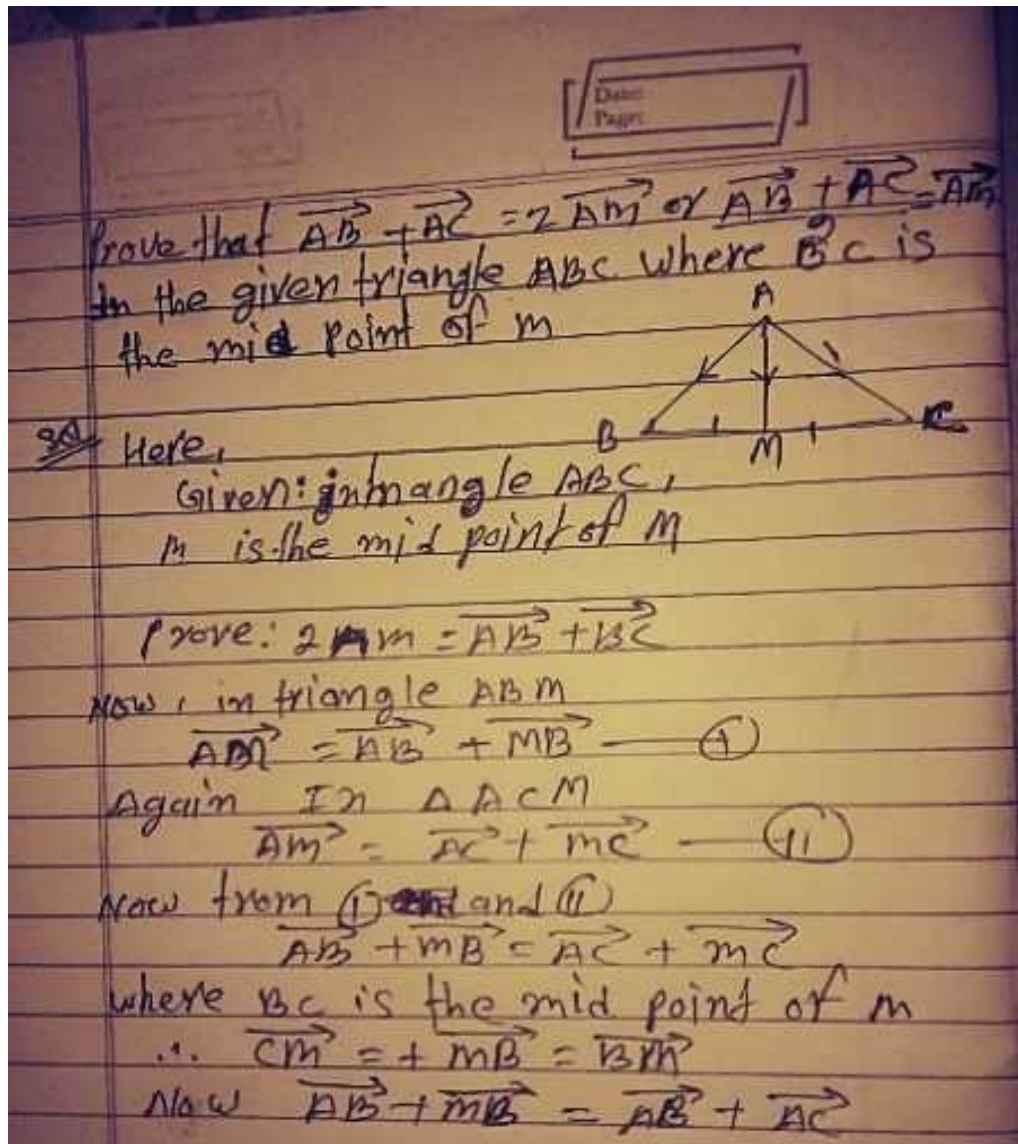 Date:
Page:
Prove that AB + AC = 2 AM or AB + AC = AM
2
In the given triangle ABC where BC is
the mid point of m
A
B
M
C
Sol
Here,
Given: in triangle ABC,
M is the mid point of M
Prove: 2 Am = AB + BC
Now, in triangle ABM
AM = AB + MB — (I)
Again In Δ ACM
Am = AC + mc — (II)
Now from (I) and (II)
AB + mB = AC + mc
where BC is the mid point of m
∴ Cm = + mB = BM
Now AB + mB = AB + AC